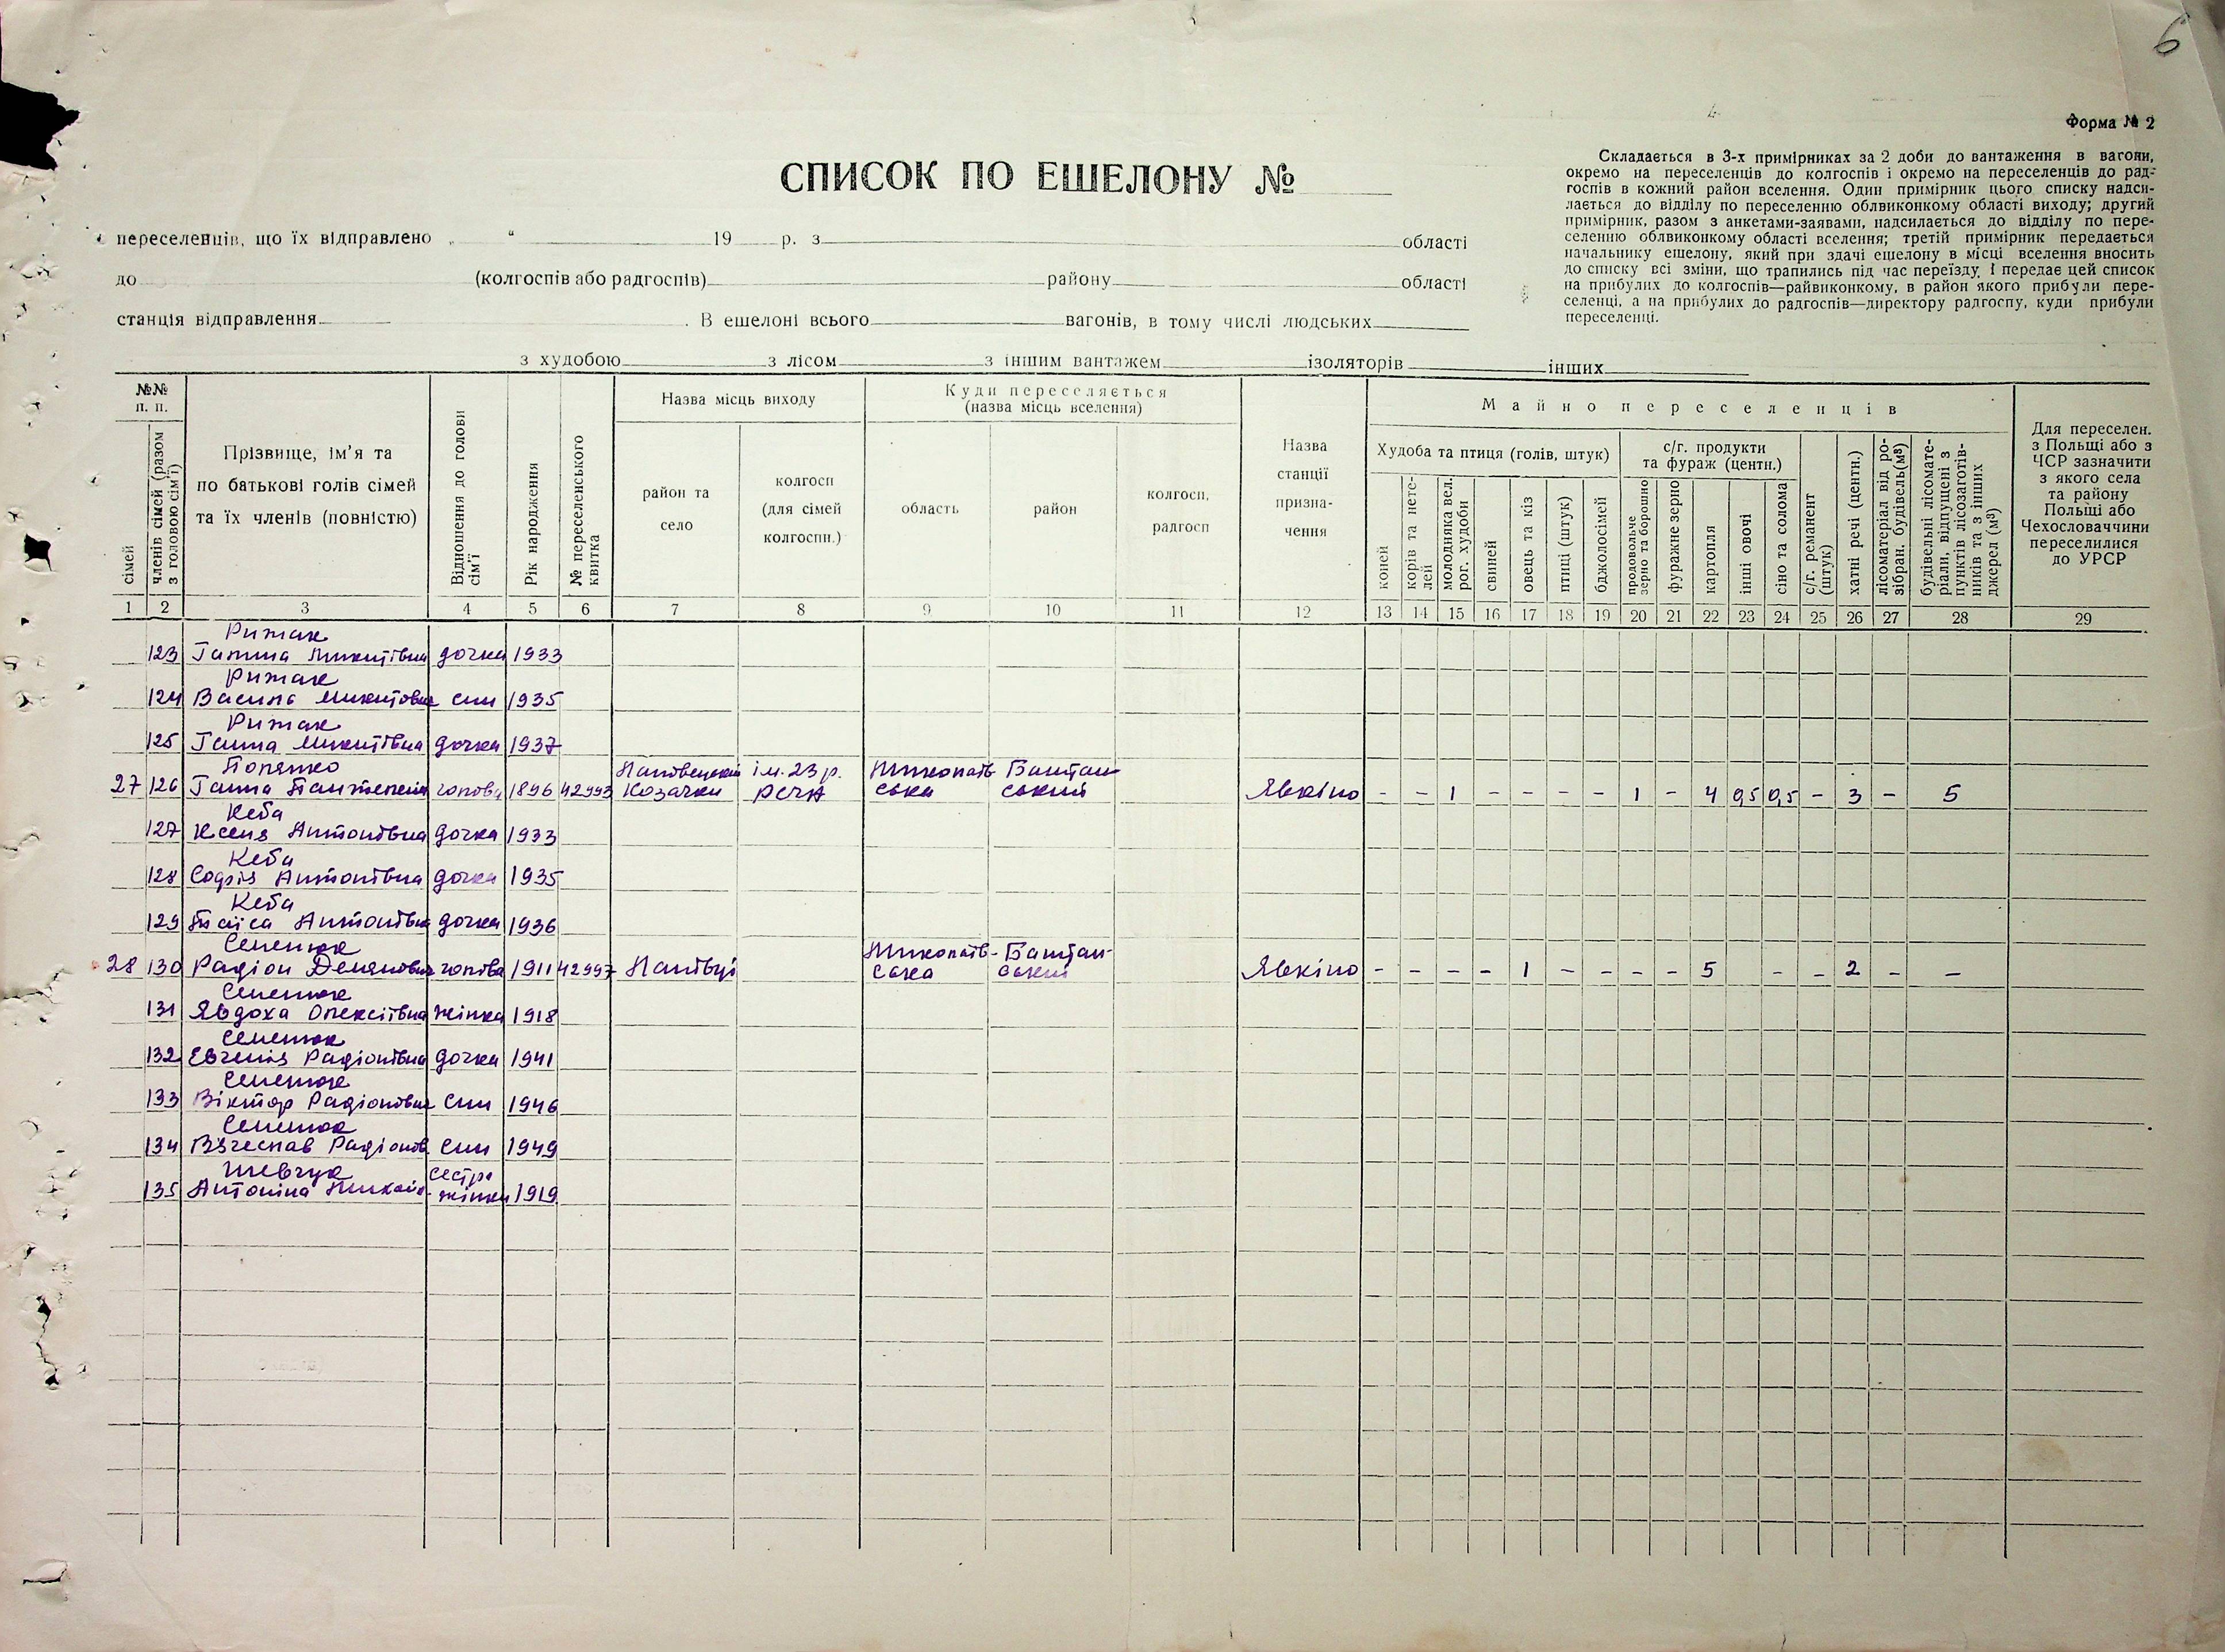 6
Форма № 2
СПИСОК ПО ЕШЕЛОНУ №
Складається в 3-х примірниках за 2 доби до вантаження в вагони,
окремо на переселенців до колгоспів і окремо на переселенців до рад-
госпів в кожний район вселення. Один примірник цього списку надси-
лається до відділу по переселенню облвиконкому області виходу; другий
примірник, разом з анкетами-заявами, надсилається до відділу по пере-
селенню облвиконкому області вселення; третій примірник передається
начальнику ешелону, який при здачі ешелону в місці вселення вносить
до списку всі зміни, що трапились під час переїзду, і передає цей список
на прибулих до колгоспів—райвиконкому, в район якого прибули пере-
селенці, а на прибулих до радгоспів—директору радгоспу, куди прибули
переселенці.
переселенців, що їх відправлено „ “ 19 р. з області
до (колгоспів або радгоспів) району області
станція відправлення . В ешелоні всього вагонів, в тому числі людських
з худобою з лісом з іншим вантажем ізоляторів інших
№№ п. п.
сімей
членів сімей (разом з головою сім'ї)
Прізвище, ім'я та
по батькові голів сімей
та їх членів (повністю)
Відношення до голови сім'ї
Рік народження
№ переселенського квитка
Назва місць виходу
район та
село
колгосп
(для сімей
колгоспн.)
Куди переселяється
(назва місць вселення)
область
район
колгосп,
радгосп
Назва
станції
призна-
чення
Майно переселенців
Худоба та птиця (голів, штук)
коней
корів та нете-
лей
молодняка вел.
рог. худоби
свиней
овець та кіз
птиці (штук)
бджолосімей
с/г. продукти
та фураж (центн.)
продовольче
зерно та борошно
фуражне зерно
картопля
інші овочі
сіно та солома
с/г. реманент
(штук)
хатні речі (центн.)
лісоматеріал від ро-
зібран. будівель(м³)
будівельні лісомате-
ріали, відпущені з
пунктів лісозаготів-
ників та з інших
джерел (м³)
Для переселен.
з Польщі або з
ЧСР зазначити
з якого села
та району
Польщі або
Чехословаччини
переселилися
до УРСР
1 2 3 4 5 6 7 8 9 10 11 12 13 14 15 16 17 18 19 20 21 22 23 24 25 26 27 28 29
Рижак
123 Ганна Микитівна дочка 1933
Рижак
124 Василь Микитович син 1935
Рижак
125 Ганна Микитівна дочка 1937
ім. 23 р. Миколаїв- Баштан-
27 126 Ганна голова 1896 42993 Козачки РСЧА ська ський Явкіно - - 1 - - - - 1 - 4 0,5 0,5 - 3 - 5
Кеба
127 Ксеня Антонівна дочка 1933
Кеба
128 Софія Антонівна дочка 1935
Кеба
129 Таїса Антонівна дочка 1936
Семенюк Миколаїв- Баштан-
28 130 Радіон голова 1911 42997 Нападівці ська ський Явкіно - - - - 1 - - - - 5 - - 2 - -
Семенюк
131 Явдоха Олексіївна жінка 1918
Семенюк
132 Евгенія Радіонівна дочка 1941
Семенюк
133 Віктор Радіонович син 1946
Семенюк
134 Вячеслав Радіонов. син 1949
Шевчук сестра
135 Антоніна жінки 1919